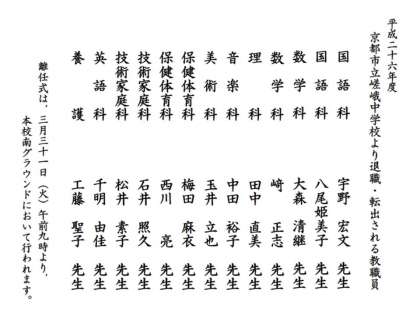 平成二十六年度
京都市立嵯峨中学校より退職・転出される教職員
国語科 宇野 宏文 先生
国語科 八尾姫美子 先生
数学科 大森 清継 先生
数学科 崎 正志 先生
理科 田中 直美 先生
音楽科 中田 裕子 先生
美術科 玉井 立也 先生
保健体育科 梅田 麻衣 先生
保健体育科 西川 亮 先生
技術家庭科 石井 照久 先生
技術家庭科 松井 素子 先生
英語科 千明 由佳 先生
養護 工藤 聖子 先生
離任式は、三月三十一日(火)午前九時より、
本校南グラウンドにおいて行われます。